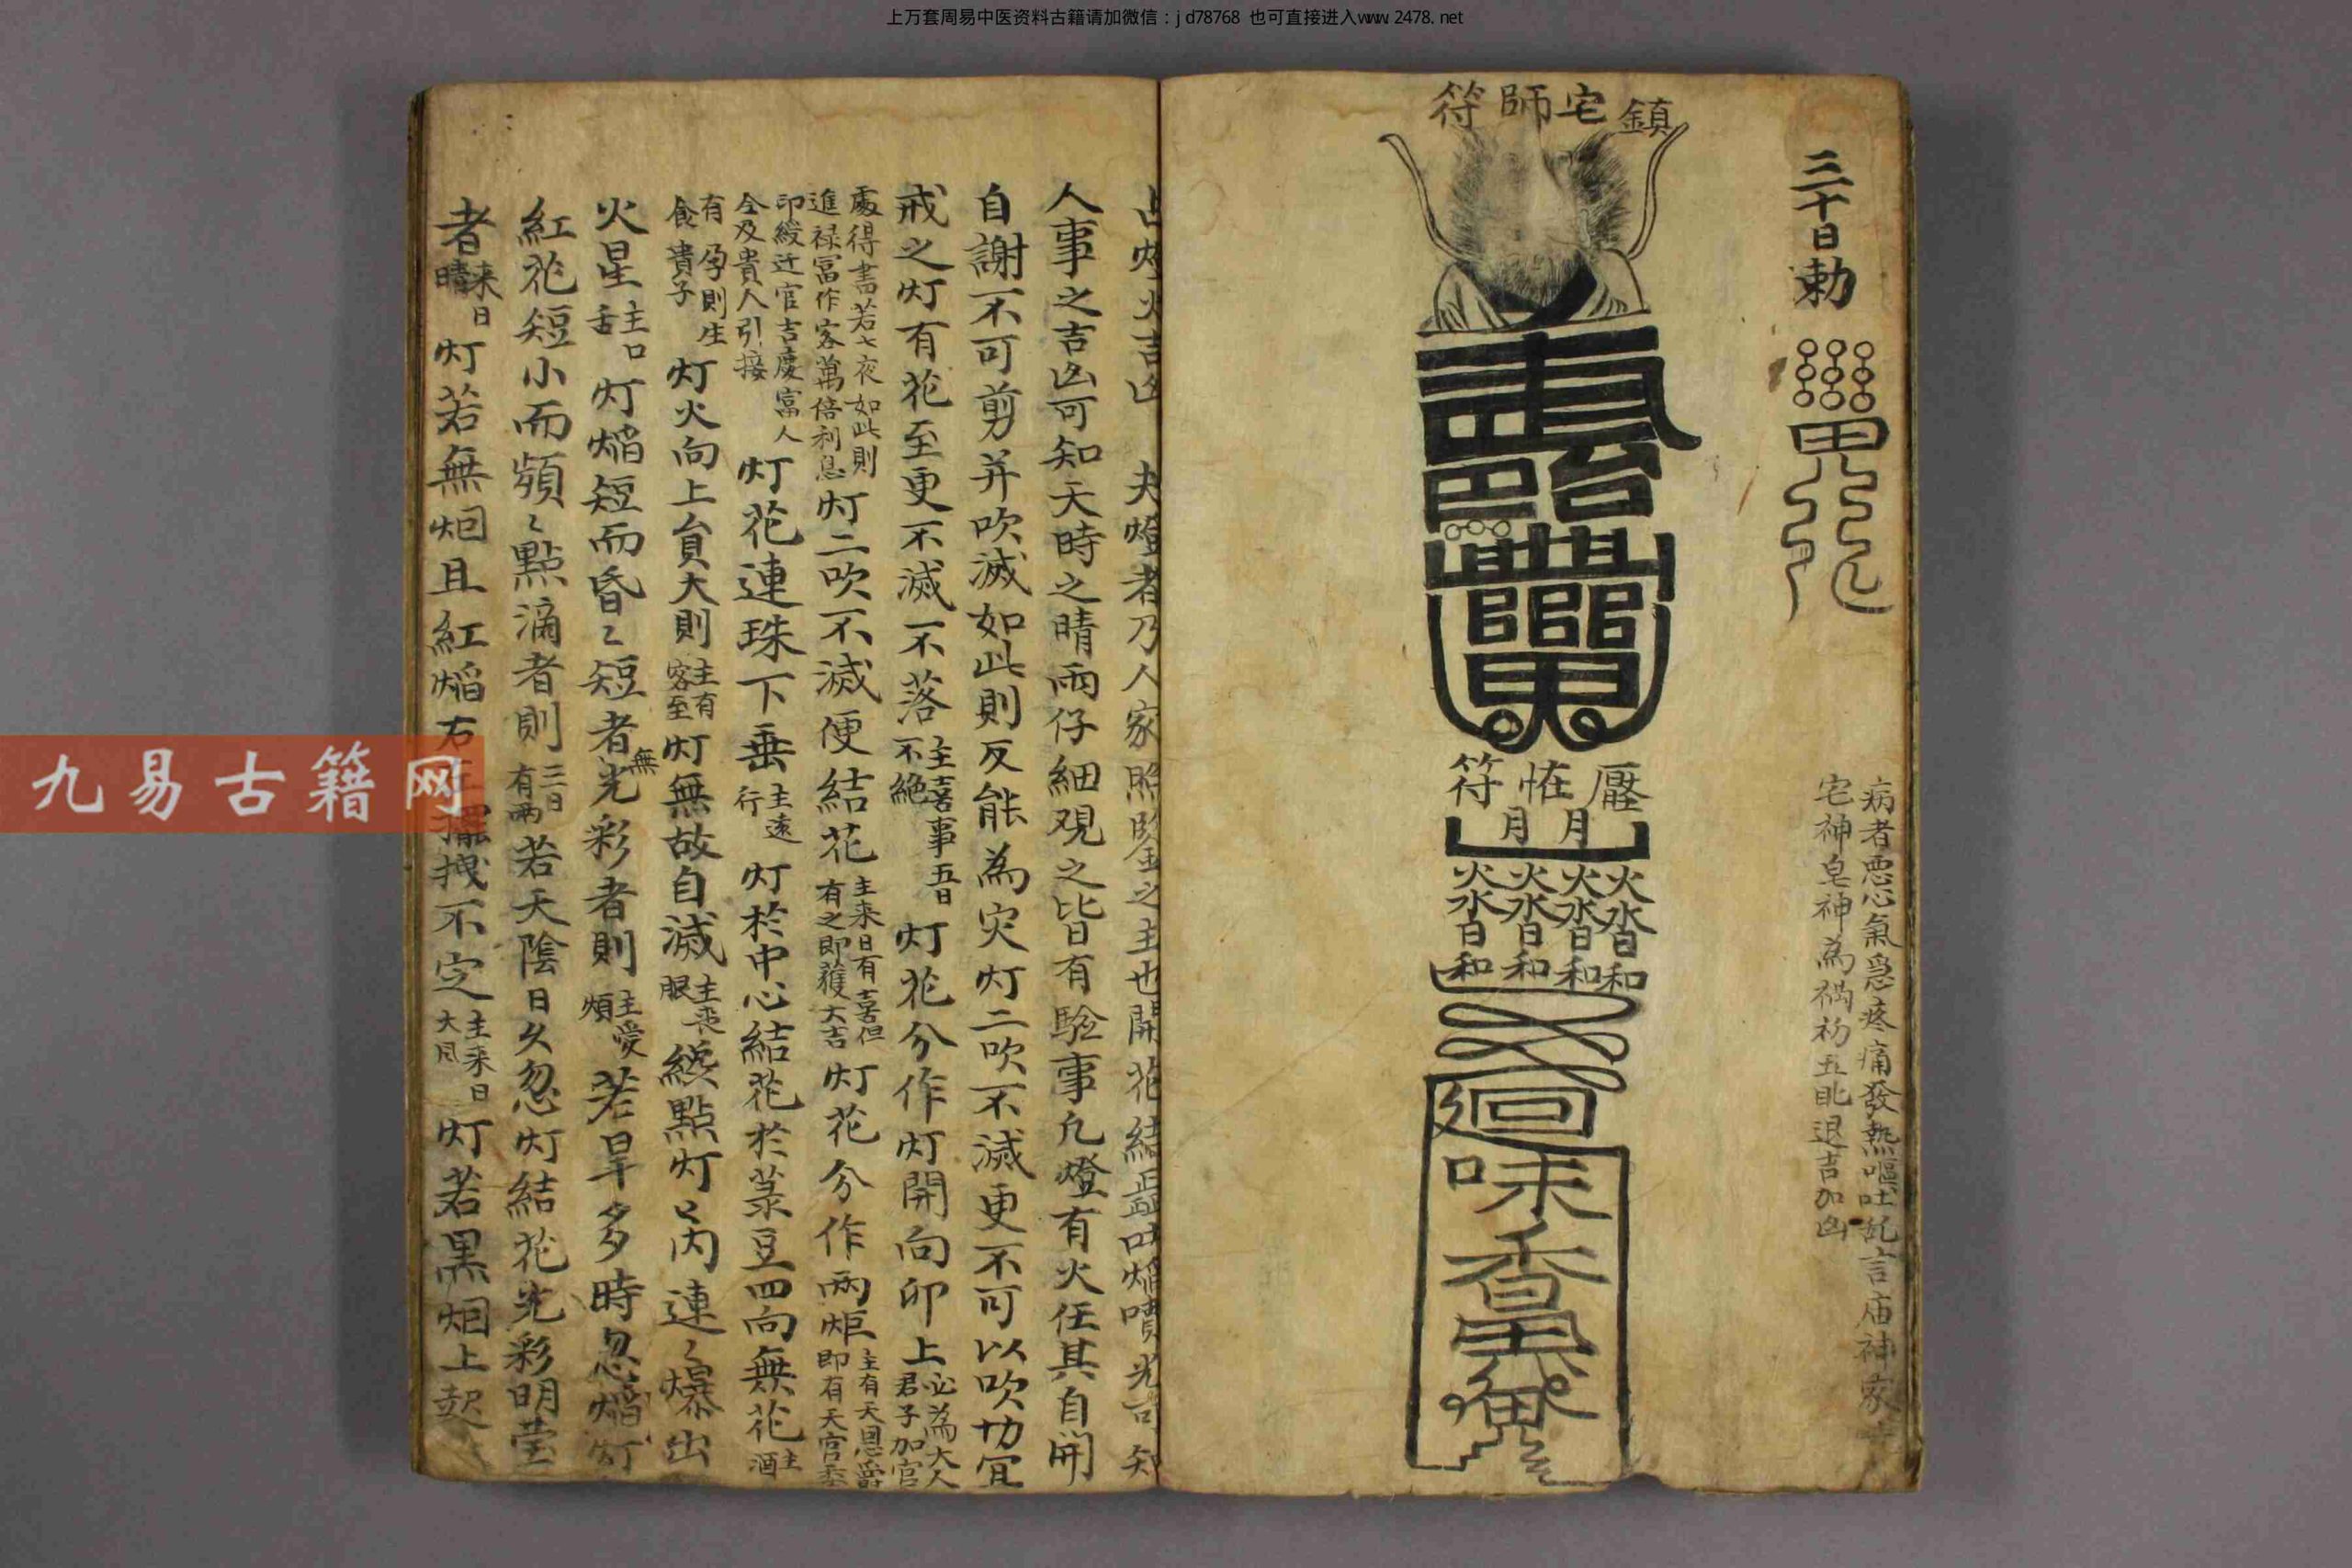 上万套周易中医资料古籍请加微信：jd78768 也可直接进入www.2478.net
三十日勅
病者悪心氣急疼痛發熱嘔吐乱言庙神家
宅神皂神為禍初五日退吉加凶
鎮宅師符
壓怪符
月月
火火火火
水水水水
日日日日
和和和和
迴
味
香
占灯火吉凶 夫燈者乃人家照鑒之主也開花結蕊吐焰噴光吉知
人事之吉凶可知天時之晴雨仔細观之皆有驗事凢燈有火任其自開
自謝不可剪并吹滅如此則反能為灾灯二吹不滅更不可以吹切宜
戒之灯有花至更不滅不落主喜事五日不絶灯花分作灯開向卯上必為大人君子加官
處得書若七夜如此則進禄冨作客萬倍利息灯二吹不滅便結花主来日有喜但有之即獲大吉灯花分作两炬主有天恩爵即有天官委
印綬迁官吉慶富人全及貴人引接灯花連珠下垂主遠行灯於中心結花於菉豆四向無花主酒
有孕則生食貴子灯火向上負大則主有客至灯無故自滅主丧服纔點灯芮連〻爆出
火星主口舌灯焰短而昏〻短者無光彩者則主憂煩若旱多時忽焰灯
紅花短小而頻〻點滴者則三日有雨若天陰日久忽灯結花光彩明莹
者来日晴灯若無烟且紅焰右左擺拽不定主来日大風灯若黒烟上起
九易古籍网